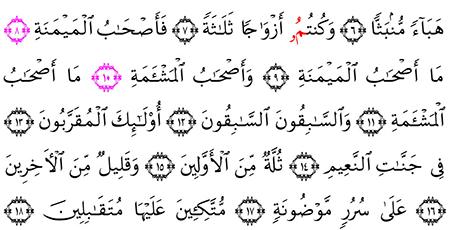 هَبَآءً مُّنۢبَثًّا ﴿٦﴾ وَكُنتُمُۥٓ أَزْوَٰجًا ثَلَٰثَةً ﴿٧﴾ فَأَصْحَٰبُ ٱلْمَيْمَنَةِ ﴿٨﴾
مَآ أَصْحَٰبُ ٱلْمَيْمَنَةِ ﴿٩﴾ وَأَصْحَٰبُ ٱلْمَشْـَٔمَةِ ﴿١٠﴾ مَآ أَصْحَٰبُ
ٱلْمَشْـَٔمَةِ ﴿١١﴾ وَٱلسَّٰبِقُونَ ٱلسَّٰبِقُونَ ﴿١٢﴾ أُو۟لَٰٓئِكَ ٱلْمُقَرَّبُونَ ﴿١٣﴾
فِى جَنَّٰتِ ٱلنَّعِيمِ ﴿١٤﴾ ثُلَّةٌ مِّنَ ٱلْأَوَّلِينَ ﴿١٥﴾ وَقَلِيلٌ مِّنَ ٱلْـَٔاخِرِينَ
﴿١٦﴾ عَلَىٰ سُرُرٍ مَّوْضُونَةٍ ﴿١٧﴾ مُتَّكِـِٔينَ عَلَيْهَا مُتَقَٰبِلِينَ ﴿١٨﴾